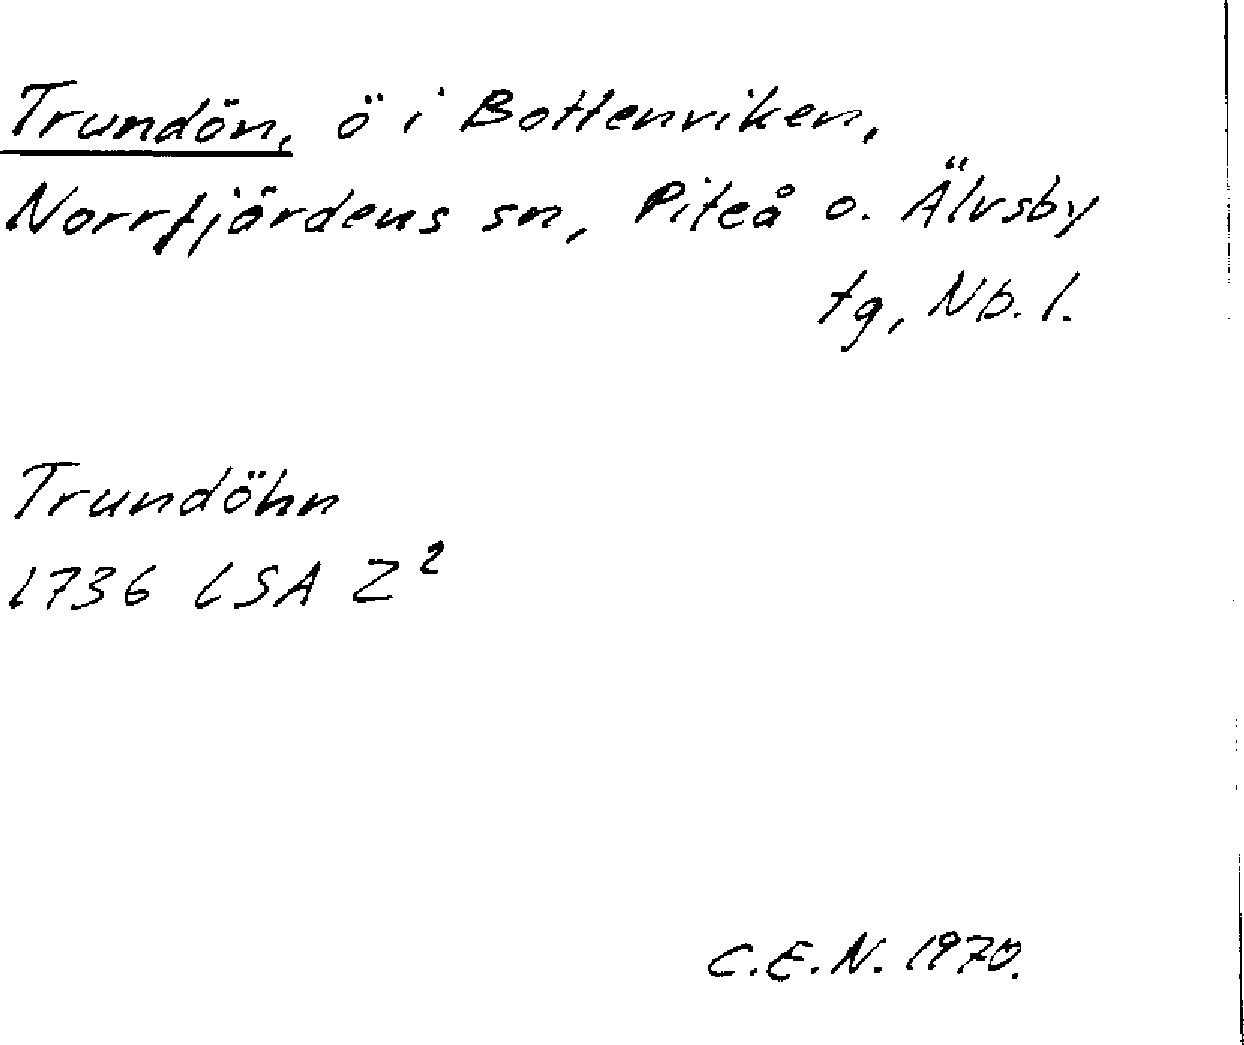 Trundön, ö i Bottenviken,
Norrfjärdens sn, Piteå o. Älvsby
tg, Nb. l.
Trundöhn
1736 LSA Z²
C.E.N. 1970.